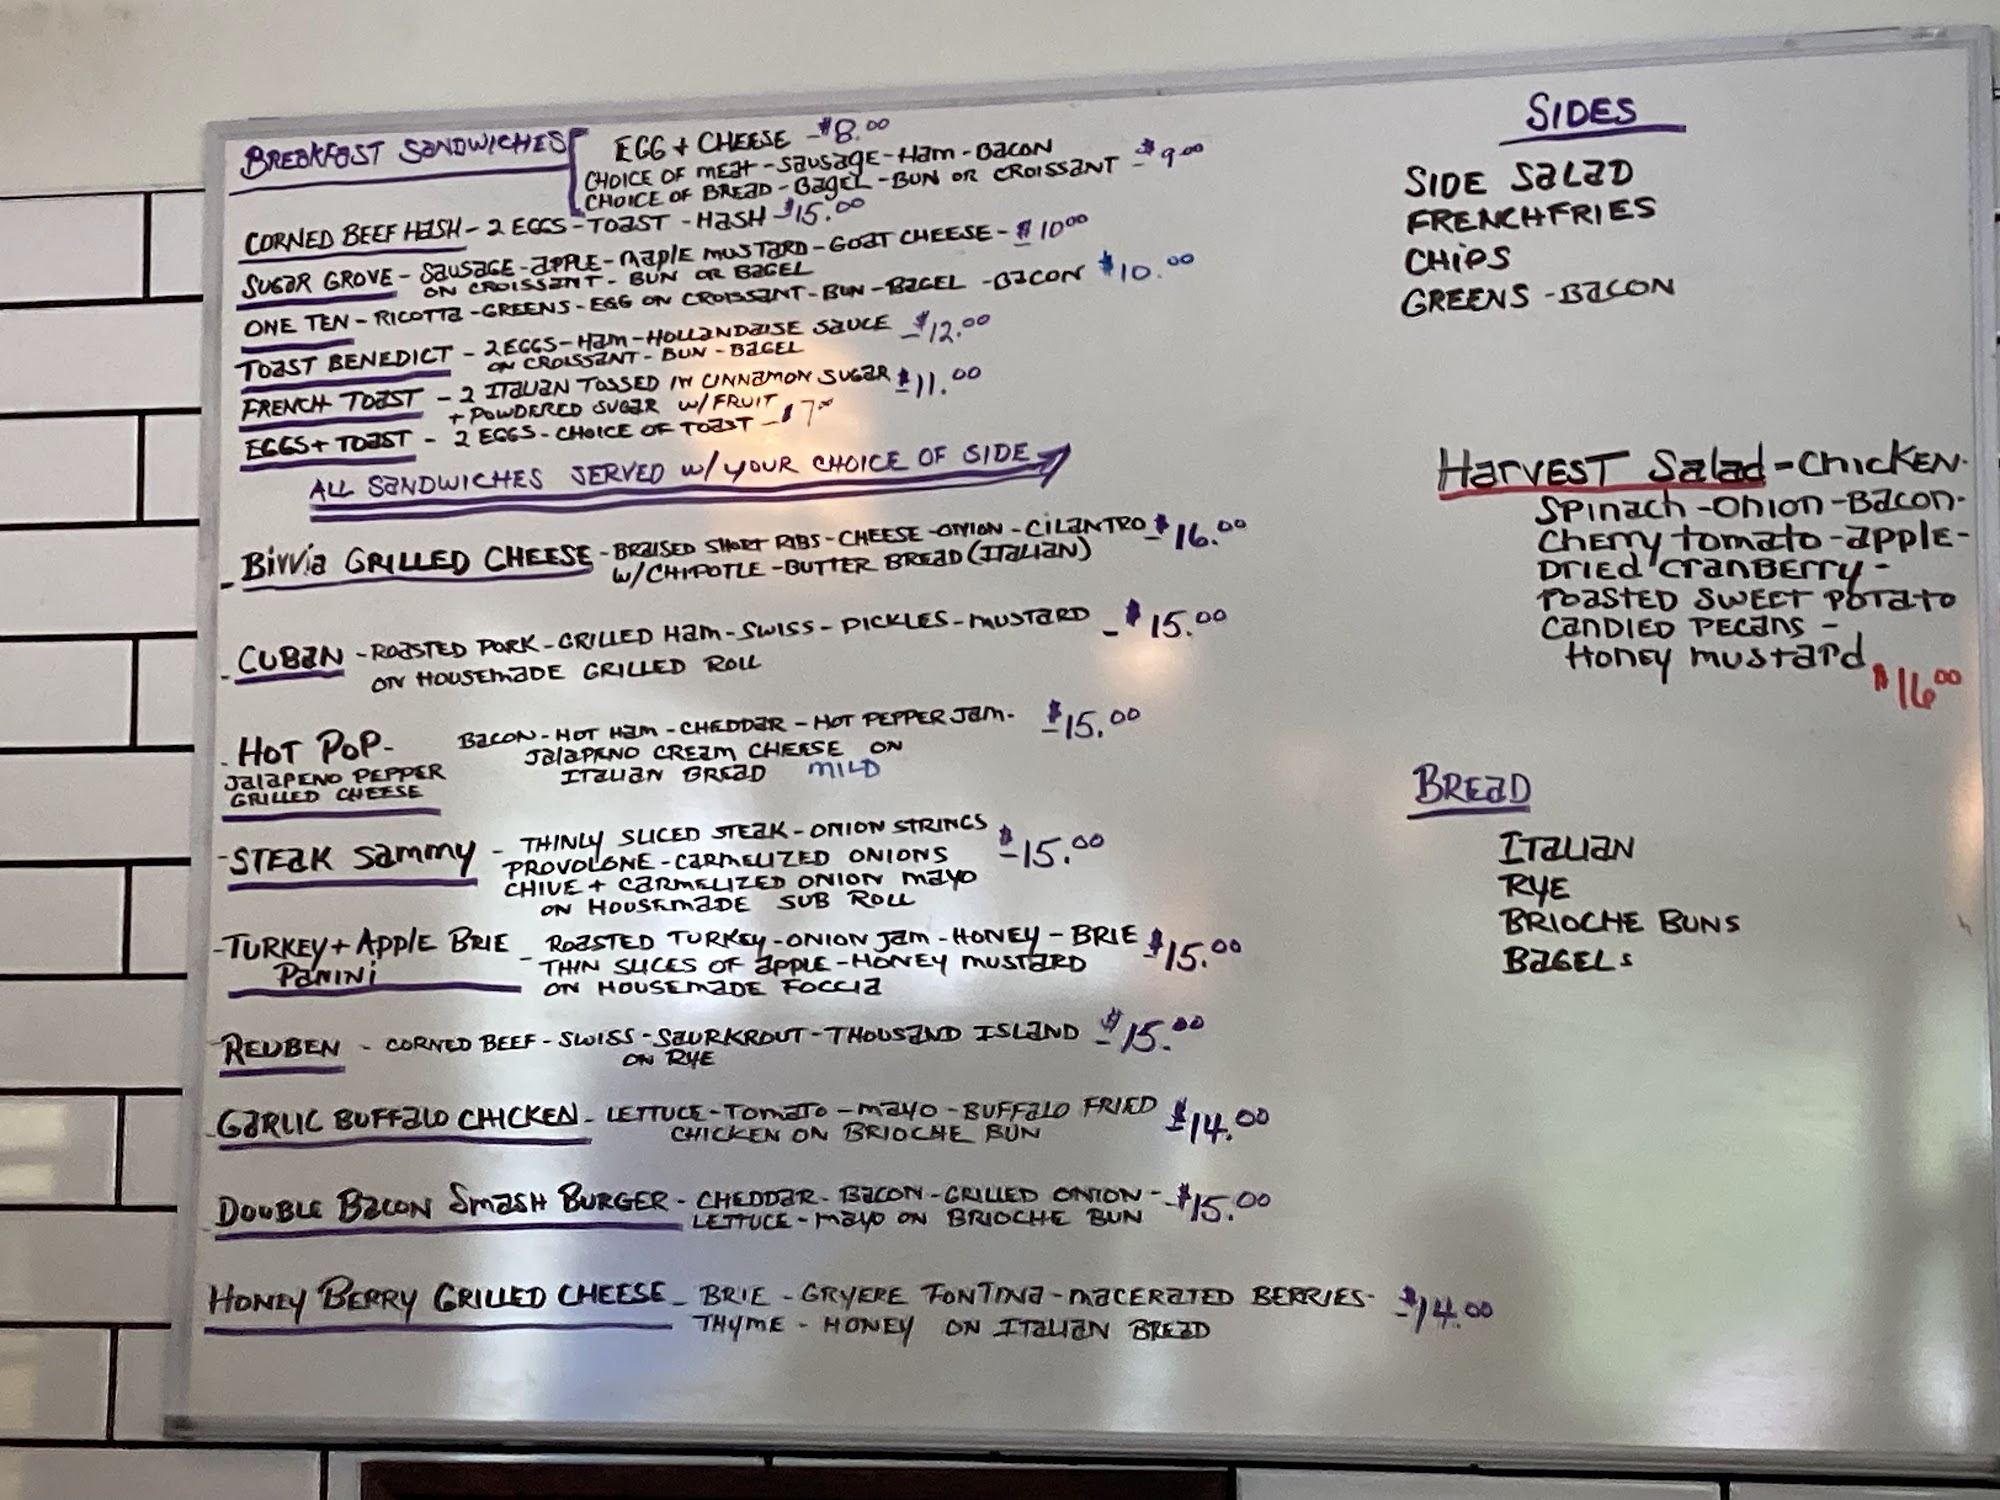 BREAKFAST SANDWICHES
EGG + CHEESE - $8.00
CHOICE OF MEAT - SAUSAGE - HAM - BACON
CHOICE OF BREAD - BAGEL - BUN OR CROISSANT - $9.00
CORNED BEEF HASH - 2 EGGS - TOAST - HASH - $15.00
SUGAR GROVE - SAUSAGE - APPLE - MAPLE MUSTARD - GOAT CHEESE - $10.00
ON CROISSANT - BUN OR BAGEL
ONE TEN - RICOTTA - GREENS - EGG ON CROISSANT - BUN - BAGEL - BACON $10.00
TOAST BENEDICT - 2 EGGS - HAM - HOLLANDAISE SAUCE - $12.00
ON CROISSANT - BUN - BAGEL
FRENCH TOAST - 2 ITALIAN TOSSED IN CINNAMON SUGAR - $11.00
+ POWDERED SUGAR W/ FRUIT
EGGS + TOAST - 2 EGGS - CHOICE OF TOAST - $7.00
ALL SANDWICHES SERVED W/ YOUR CHOICE OF SIDE
- BIVVIA GRILLED CHEESE - BRAISED SHORT RIBS - CHEESE - ONION - CILANTRO - $16.00
W/ CHIPOTLE - BUTTER BREAD (ITALIAN)
- CUBAN - ROASTED PORK - GRILLED HAM - SWISS - PICKLES - MUSTARD - $15.00
ON HOUSEMADE GRILLED ROLL
- HOT POP - BACON - HOT HAM - CHEDDAR - HOT PEPPER JAM - $15.00
JALAPENO PEPPER JALAPENO CREAM CHEESE ON
GRILLED CHEESE ITALIAN BREAD MILD
- STEAK SAMMY - THINLY SLICED STEAK - ONION STRINGS - $15.00
PROVOLONE - CARMELIZED ONIONS
CHIVE + CARMELIZED ONION MAYO
ON HOUSEMADE SUB ROLL
- TURKEY + APPLE BRIE - ROASTED TURKEY - ONION JAM - HONEY - BRIE $15.00
PANINI THIN SLICES OF APPLE - HONEY MUSTARD
ON HOUSEMADE FOCCIA
REUBEN - CORNED BEEF - SWISS - SAURKROUT - THOUSAND ISLAND - $15.00
ON RYE
- GARLIC BUFFALO CHICKEN - LETTUCE - TOMATO - MAYO - BUFFALO FRIED $14.00
CHICKEN ON BRIOCHE BUN
DOUBLE BACON SMASH BURGER - CHEDDAR - BACON - GRILLED ONION - $15.00
LETTUCE - MAYO ON BRIOCHE BUN
HONEY BERRY GRILLED CHEESE - BRIE - GRYERE FONTINA - MACERATED BERRIES - $14.00
THYME - HONEY ON ITALIAN BREAD
SIDES
SIDE SALAD
FRENCHFRIES
CHIPS
GREENS - BACON
HARVEST SALAD - CHICKEN -
SPINACH - ONION - BACON -
CHERRY TOMATO - APPLE -
DRIED CRANBERRY -
ROASTED SWEET POTATO
CANDIED PECANS -
HONEY MUSTARD
$16.00
BREAD
ITALIAN
RYE
BRIOCHE BUNS
BAGELS